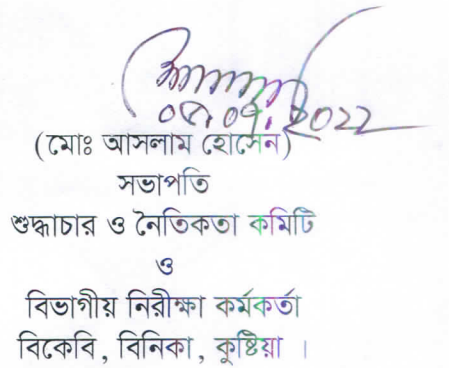 (মোঃ আসলাম হোসেন)
সভাপতি
শুদ্ধাচার ও নৈতিকতা কমিটি
ও
বিভাগীয় নিরীক্ষা কর্মকর্তা
বিকেবি, বিনিকা, কুষ্টিয়া ।